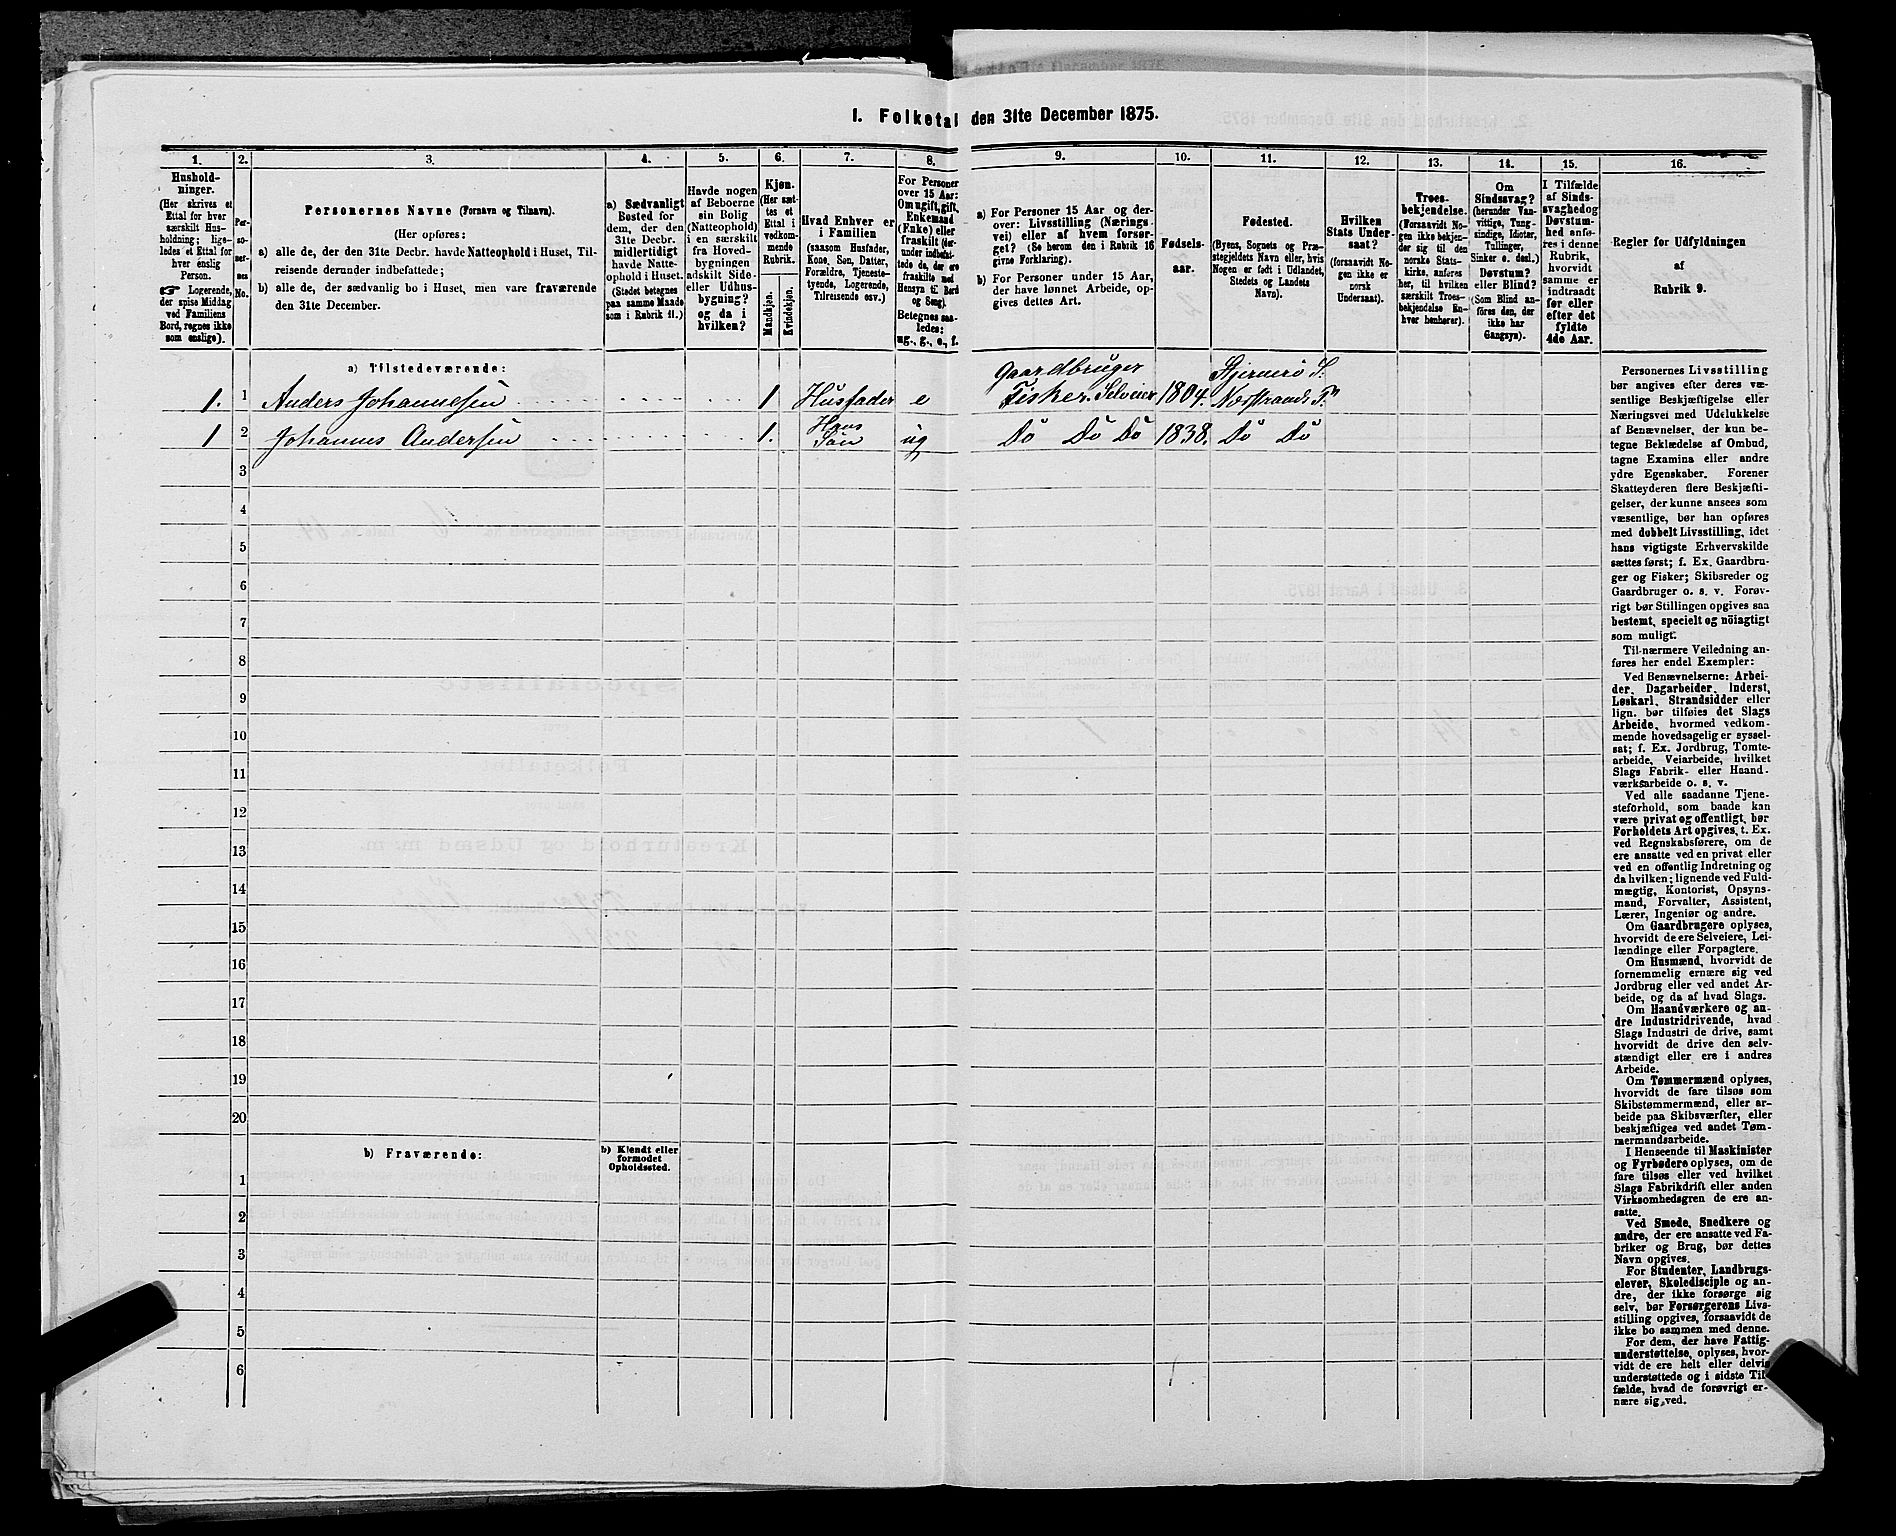 1. Folketal den 31te December 1875.
1.
Hushold-
ninger.
(Her skrives et
Ettal for hver
særskilt Hus-
holdning; lige-
ledes et Ettal for
hver enslig
Person.
☞ Logerende,
der spise Middag
ved Familiens
Bord, regnes ikke
som enslige).
2.
Per-
so-
ner-
nes
No.
3.
Personernes Navne (Fornavn og Tilnavn).
(Her opføres:
a) alle de, der den 31te Decbr. havde Natteophold i Huset, Til-
reisende derunder indbefattede;
b) alle de, der sædvanlig bo i Huset, men vare fraværende
den 31te December.
4.
a) Sædvanligt
Bosted for
dem, der den
31te Decbr.
midlertidigt
havde Natte-
ophold i Huset.
(Stedet betegnes
paa samme Maade
som i Rubrik 11.)
5.
Havde nogen
af Beboerne
sin Bolig
(Natteophold)
i en særskilt
fra Hoved-
bygningen
adskilt Side-
eller Udhus-
bygning?
og da i
hvilken?
6.
Kjøn.
(Her sæt-
tes et
Ettal i
vedkom-
mende
Rubrik.
Mandkjøn.
Kvindekjøn.
7.
Hvad Enhver er
i Familien
(saasom Husfader,
Kone, Søn, Datter,
Forældre, Tjeneste-
tyende, Logerende,
Tilreisende osv.)
8.
For Personer
over 15 Aar:
Om ugift, gift,
Enkemand
(Enke) eller
fraskilt (der-
under indbefat-
tede de, der ere
fraskilte med
Hensyn til Bord
og Seng).
Betegnes saa-
ledes:
ug., g., e., f.
9.
a) For Personer 15 Aar og der-
over: Livsstilling (Nærings-
vei) eller af hvem forsør-
get? (Se herom den i Rubrik 16
givne Forklaring).
b) For Personer under 15 Aar,
der have lønnet Arbeide, op-
gives dettes Art.
10.
Fødsels-
aar.
11.
Fødested.
(Byens, Sognets og Præ-
stegjeldets Navn eller, hvis
Nogen er født i Udlandet,
Stedets og Landets
Navn).
12.
Hvilken
Stats Under-
saat?
(forsaavidt No-
gen ikke er
norsk
Undersaat).
13.
Troes-
bekjendelse.
(Forsaavidt No-
gen ikke bekjen-
der sig til den
norske Stats-
kirke, anføres
her, til hvilken
særskilt Troes-
bekjendelse En-
hver henhører).
14.
Om
Sindssvag?
(herunder Van-
vittige, Tung-
sindige, Idioter,
Tullinger,
Sinker o. desl.)
Døvstum?
eller Blind?
(Som Blind an-
føres den, der
ikke har
Gangsyn).
15.
I Tilfælde
af Sinds-
svaghed og
Døvstum-
hed anfø-
res i denne
Rubrik,
hvorvidt
samme er
indtraadt
før eller
efter det
fyldte
4de Aar.
16.
Regler for Udfyldningen
af
Rubrik 9.
a) Tilstedeværende:
1. 1 Anders Johannesen 1 Husfader e Gaardbruger Fisker. Selveier 1804. Sjernerø S. Nærstrands P.
1 2 Johannes Andersen 1. Hans Søn ug Do Do Do 1838. Do Do
3
4
5
6
7
8
9
10
11
12
13
14
15
16
17
18
19
20
b) Fraværende:
b) Kjendt eller
formodet
Opholdssted.
1
2
3
4
5
6
Personernes Livsstilling
bør angives efter deres væ-
sentlige Beskjæftigelse eller
Næringsvei med Udelukkelse
af Benævnelser, der kun be-
tegne Beklædelse af Ombud,
tagne Examina eller andre
ydre Egenskaber. Forener
Skatteyderen flere Beskjæfti-
gelser, der kunne ansees som
væsentlige, bør han opføres
med dobbelt Livsstilling, idet
hans vigtigste Erhvervskilde
sættes først; f. Ex. Gaardbru-
ger og Fisker; Skibsreder og
Gaardbruger o. s. v. Forøv-
rigt bør Stillingen opgives saa
bestemt, specielt og nöiagtigt
som muligt.
Til nærmere Veiledning an-
føres her endel Exempler:
Ved Benævnelserne: Arbei-
der, Dagarbeider, Inderst,
Løskarl, Strandsidder eller
lign. bør tilføies det Slags
Arbeide, hvormed vedkom-
mende hovedsagelig er syssel-
sat; f. Ex. Jordbrug, Tomte-
arbeide, Veiarbeide, hvilket
Slags Fabrik- eller Haand-
værksarbeide o. s. v.
Ved alle saadanne Tjene-
steforhold, som baade kan
være privat og offentligt, bør
Forholdets Art opgives, t. Ex.
ved Regnskabsførere, om de
ere ansatte ved en privat eller
ved en offentlig Indretning og
da hvilken; lignende ved Fuld-
mægtig, Kontorist, Opsyns-
mand, Forvalter, Assistent,
Lærer, Ingeniør og andre.
Om Gaardbrugere oplyses,
hvorvidt de ere Selveiere, Lei-
lændinge eller Forpagtere.
Om Husmænd, hvorvidt de
fornemmelig ernære sig ved
Jordbrug eller ved andet Ar-
beide, og da af hvad Slags.
Om Haandværkere og an-
dre Industridrivende, hvad
Slags Industri de drive, samt
hvorvidt de drive den selv-
stændigt eller ere i andres
Arbeide.
Om Tømmermænd oplyses,
hvorvidt de fare tilsøs som
Skibstømmermænd, eller ar-
beide paa Skibsværfter, eller
beskjæftiges ved andet Tøm-
mermandsarbeide.
I Henseende til Maskinister
og Fyrbødere oplyses, om de
fare tilsøs eller ved hvilket
Slags Fabrikdrift eller anden
Virksomhedsgren de ere an-
satte.
Ved Smede, Snedkere og
andre, der ere ansatte ved Fa-
briker og Brug, bør dettes
Navn opgives.
For Studenter, Landbrugs-
elever, Skoledisciple og an-
dre, der ikke forsørge sig
selv, bør Forsørgerens Livs-
stilling opgives, forsaavidt de
ikke bo sammen med denne.
For dem, der have Fattig-
understøttelse, oplyses, hvor-
vidt de ere helt eller delvis
understøttede og i sidste Til-
fælde, hvad de forøvrigt er-
nære sig ved.